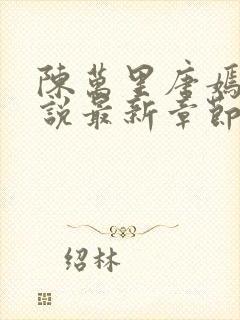 陳萬里唐嫣
說最新章節
绍林